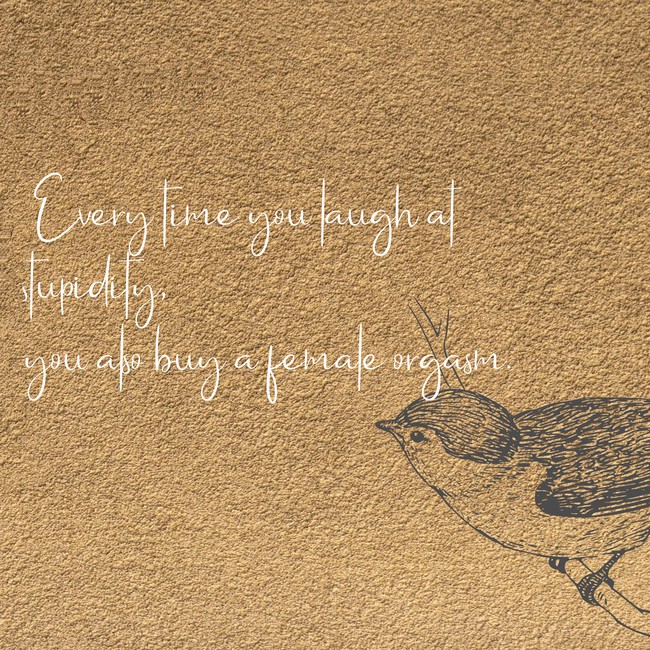 Every time you laugh at
stupidity,
you also buy a female orgasm.